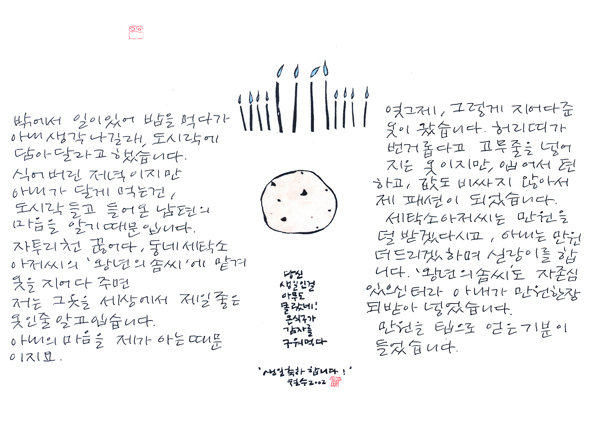 밖에서 일이있어 밥을 먹다가
아내생각나길래, 도시락에
담아달라고 했습니다.
식어버린 저녁이지만
아내가 달게 먹는건,
도시락들고 들어온 남편의
마음을 알기때문입니다.
자투리천 끊어다, 동네세탁소
아저씨의 '왕년의솜씨'에 맡겨
옷을 지어다 주면
저는 그옷을 세상에서 제일좋은
옷인줄 알고 입습니다.
아내의 마음을 제가 아는때문
이지요.
당신
생일인걸
아무도
몰랐네!
온식구가
감자를
구워먹다
'생일축하 합니다!'
철수2002
엊그제, 그렇게 지어다준
옷이 왔습니다. 허리띠가
번거롭다고 고무줄을 넣어
지은 옷이지만, 입어서 편
하고, 값도 비싸지 않아서
제 패션이 되었습니다.
세탁소아저씨는 만원을
덜 받겠다시고, 아내는 만원
더드리겠다하며 실랑이를 합
니다. '왕년의솜씨'도 자존심
있으신터라 아내가 만원한장
되받아 넣었습니다.
만원을 팁으로 얻는기분이
들었습니다.